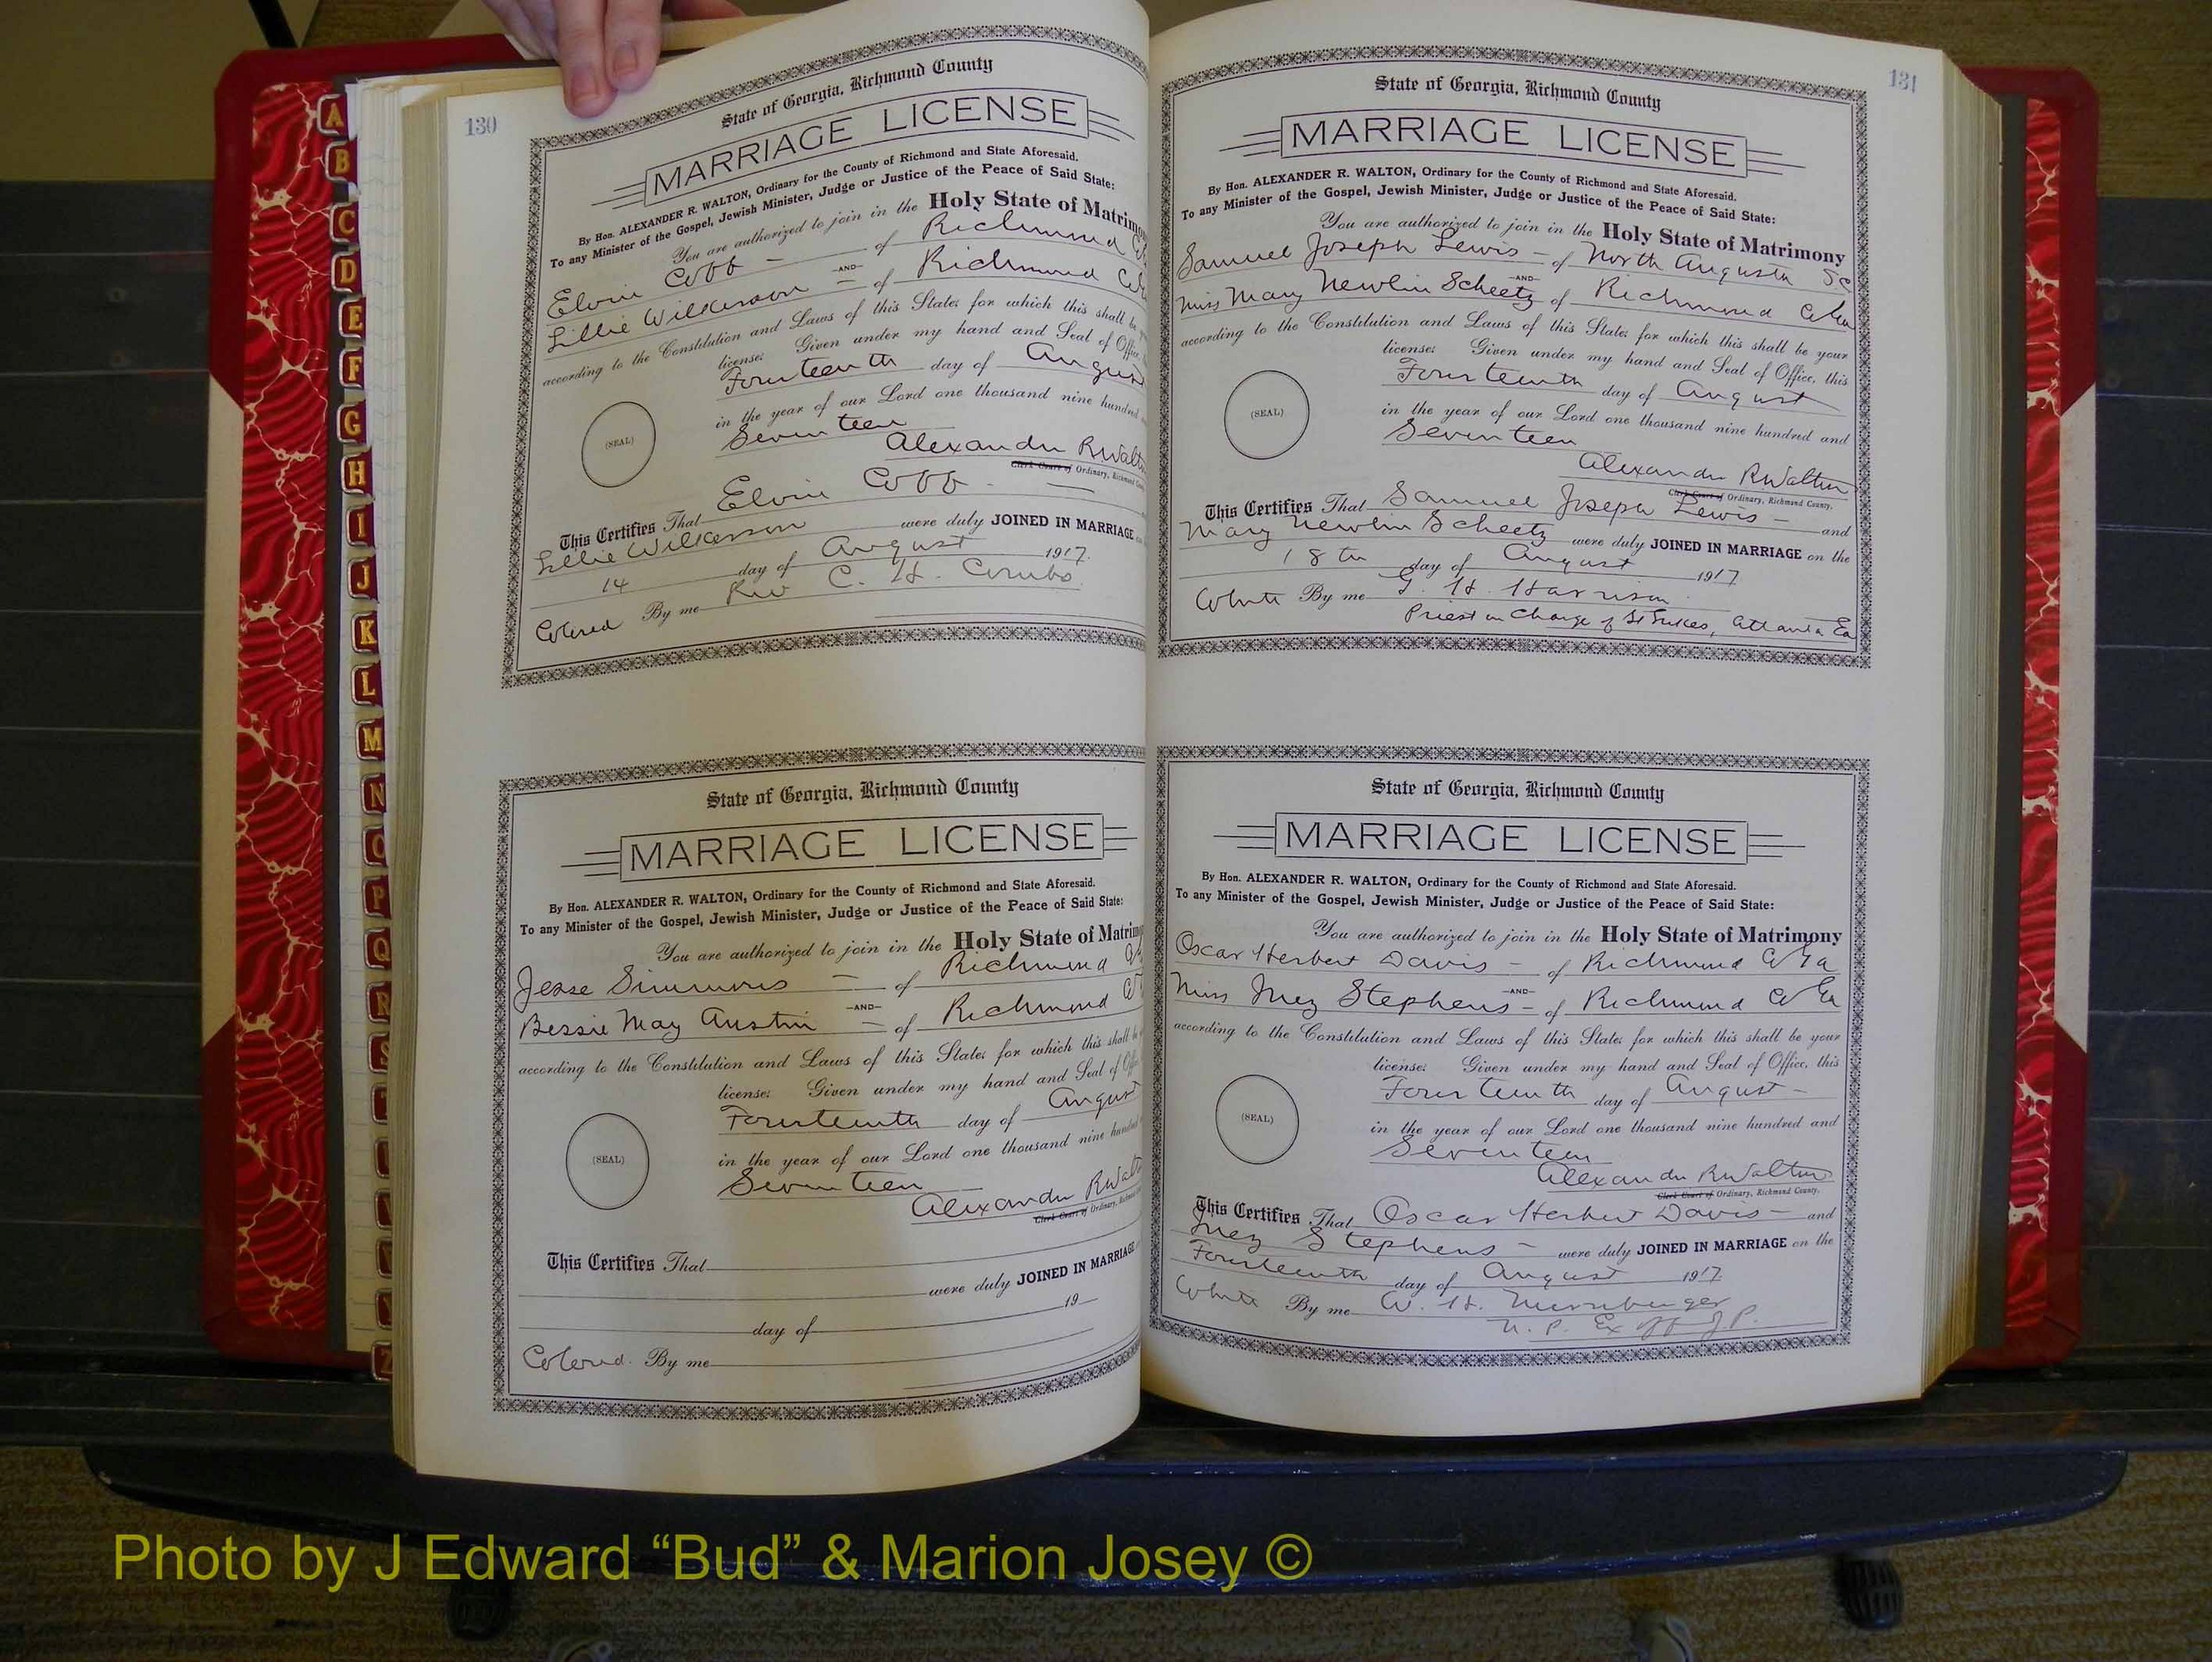 A
B
C
D
E
F
G
H
I
J
K
L
M
N
O
P
Q
R
S
T
Z
130
State of Georgia, Richmond County
MARRIAGE LICENSE
By Hon. ALEXANDER R. WALTON, Ordinary for the County of Richmond and State Aforesaid.
To any Minister of the Gospel, Jewish Minister, Judge or Justice of the Peace of Said State:
You are authorized to join in the Holy State of Matrimo
Elvin Cobb - of Richmond
-AND-
Lillie Wilkerson - of Richmond
according to the Constitution and Laws of this State; for which this shall be
license: Given under my hand and Seal of Office,
Fourteenth day of August
in the year of our Lord one thousand nine hundred
Seventeen
(SEAL)
Alexander R Walton
Clerk Court of Ordinary, Richmond
This Certifies That Elvin Cobb
Lillie Wilkerson were duly JOINED IN MARRIAGE
14 day of August 1917.
Colored By me Rev C. H.
State of Georgia, Richmond County
MARRIAGE LICENSE
By Hon. ALEXANDER R. WALTON, Ordinary for the County of Richmond and State Aforesaid.
To any Minister of the Gospel, Jewish Minister, Judge or Justice of the Peace of Said State:
You are authorized to join in the Holy State of Matrimo
Jesse Simmons - of Richmond
-AND-
Bessie May Austin - of Richmond
according to the Constitution and Laws of this State; for which this shall be
license: Given under my hand and Seal of Offi
Fourteenth day of August
in the year of our Lord one thousand nine hundred
Seventeen
(SEAL)
Alexander R Walton
Clerk Court of Ordinary, Richmond
This Certifies That
were duly JOINED IN MARRIAGE
day of 19
Colored. By me
131
State of Georgia, Richmond County
MARRIAGE LICENSE
By Hon. ALEXANDER R. WALTON, Ordinary for the County of Richmond and State Aforesaid.
To any Minister of the Gospel, Jewish Minister, Judge or Justice of the Peace of Said State:
You are authorized to join in the Holy State of Matrimony
Samuel Joseph Lewis - of North Augusta SC
-AND-
Miss Mary Newlin Scheetz of Richmond Co Ga
according to the Constitution and Laws of this State; for which this shall be your
license: Given under my hand and Seal of Office, this
Fourteenth day of August
in the year of our Lord one thousand nine hundred and
Seventeen
(SEAL)
Alexander R Walton
Clerk Court of Ordinary, Richmond County.
This Certifies That Samuel Joseph Lewis - and
Mary Newlin Scheetz were duly JOINED IN MARRIAGE on the
18th day of August 1917
White By me G. H. Harrison
Priest in Charge of St Lukes, Atlanta Ga
State of Georgia, Richmond County
MARRIAGE LICENSE
By Hon. ALEXANDER R. WALTON, Ordinary for the County of Richmond and State Aforesaid.
To any Minister of the Gospel, Jewish Minister, Judge or Justice of the Peace of Said State:
You are authorized to join in the Holy State of Matrimony
Oscar Herbert Davis - of Richmond Co Ga
-AND-
Miss Inez Stephens - of Richmond Co Ga
according to the Constitution and Laws of this State; for which this shall be your
license: Given under my hand and Seal of Office, this
Fourteenth day of August -
in the year of our Lord one thousand nine hundred and
Seventeen
(SEAL)
Alexander R Walton
Clerk Court of Ordinary, Richmond County.
This Certifies That Oscar Herbert Davis - and
Inez Stephens - were duly JOINED IN MARRIAGE on the
Fourteenth day of August 1917
White By me W. H. Nurnberger
N. P. Ex off J. P.
Photo by J Edward “Bud” & Marion Josey ©